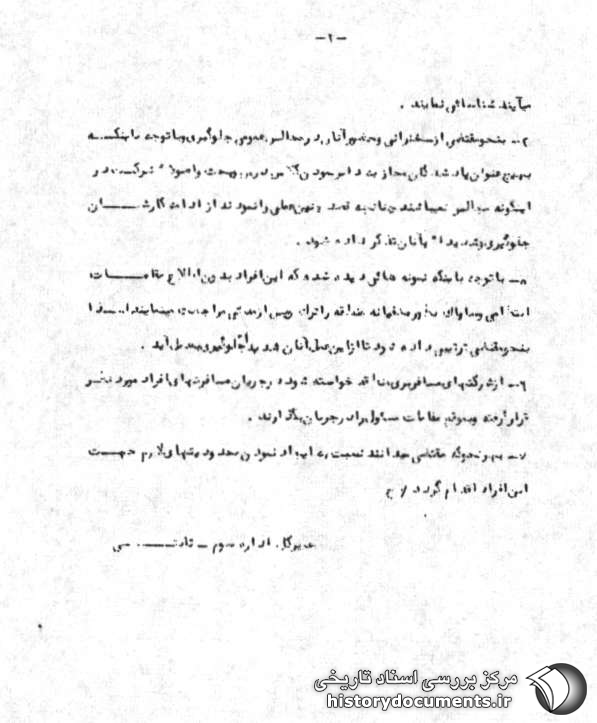 -۲-
میآیند شناسائی نمایند .
بنحو مقتضی از سخنرانی و حضور آنان در مجالس عمومی جلوگیری و با توجه باینکه
بهیچ عنوان یاد شدگان مجاز به
اینگونه مجالس نمیباشند چنانچه قصد چنین عملی را نمودند از ادامه کارشان
جلوگیری و شدیدا" بآنان تذکر داده شود .
۵- با توجه باینکه نمونه هائی دیده شده که این افراد بدون اطلاع مقامات
انتظامی و ساواک بطور مخفیانه منطقه را ترک و پس از مدتی مراجعت مینمایند لذا
بنحو مقتضی ترتیبی داده شود تا از این عمل آنان شدیدا جلوگیری بعمل آید .
۶- از شرکتهای مسافربری منطقه خواسته شود در جریان مسافرتهای افراد مورد نظر
قرار گرفته و بموقع مقامات مسئول را در جریان بگذارند .
۷- بهر نحو که مقتضی میدانند نسبت به ایجاد نمودن محدودیتهای لازم جهت
این افراد اقدام گردد
مدیرکل اداره سوم - ثابتی
مرکز بررسی اسناد تاریخی
historydocuments.ir